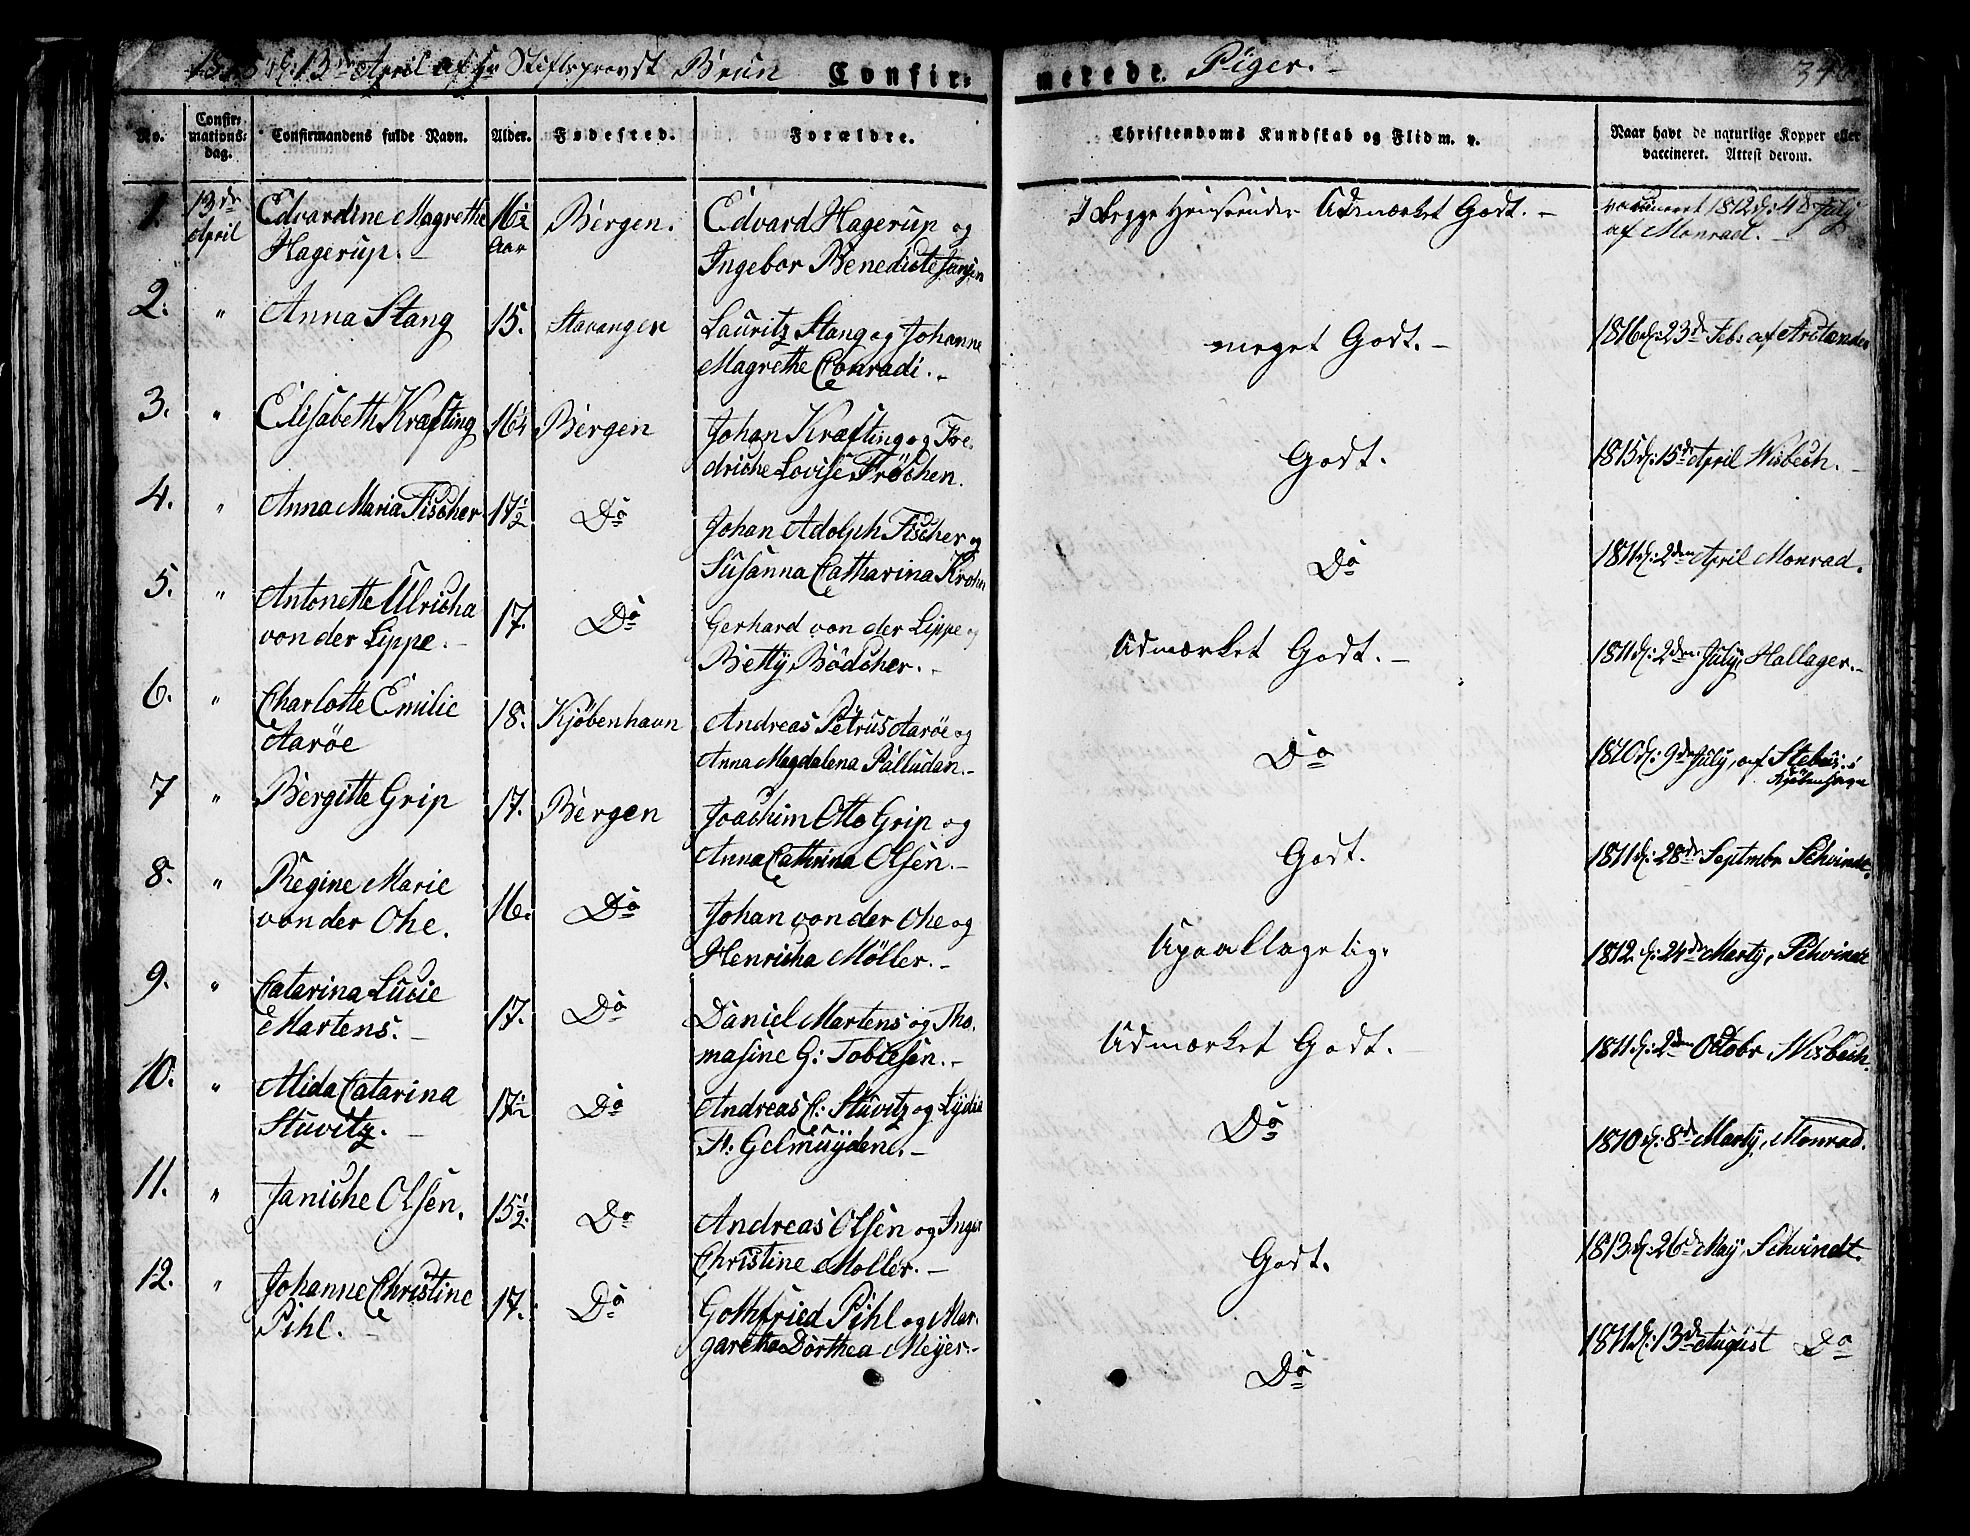 13de April af Hr Stiftsprovst Brun Confir- merede. Piger.
No. Confirmationsdag. Confirmandens fulde Navn. Alder. Fødested. Forældre. Christendoms Kundskab og Flid m. v. Naar havt de naturlige Kopper eller vaccineret. Attest derom.
1. 13de April Edvardine Magrethe Hagerup. 16½ Aar Bergen. Edvard Hagerup og Ingebor Benedicte Jansen I Begge Henseender Udmærket Godt. vaccineret 1812 d: 4d July af Monrad.
2. " Anna Stang 15. Stavanger Lauritz Stang og Johanne Magrethe Conradi. meget Godt. 1816 d: 23de Feb: af
3. " Elisabeth Kræfting Bergen Johan Kræfting og Fredriche Lovise Fröchen. Godt. 1815 d: 15de April Wisbech.
4. " Anna Maria Fischer 17½ Do Johan Adolph Fischer og Susanna Catharina Krohn Do 1811 d: 2den April Monrad.
5. " Antonette Ulricha von der Lippe. 17. Do Gerhard von der Lippe og Betty Bödcher. Udmærket Godt. 1811 d: 2den July, Hallager.
6. " Charlotte Emilie Aarøe 18. Kjøbenhavn Andreas Petrus Aarøe og Anna Magdalena Palludan. Do 1810 d: 9de July, af i Kjøbenhavn
7 " Bergitte Grip 17. Bergen Joachim Otto Grip og Anna Cathrina Olsen. Godt. 1811 d: 28de Septmbr
8. " Regine Marie von der Ohe. 16. Do Johan von der Ohe og Henricha Möller. Upaaklagelig. 1812. d: 24de Martij,
9. " Catarina Lucie Martens. 17. Do Daniel Martens og Thomasine G: Tobiesen. Udmærket Godt. 1811 d: 2den Octobr Wisbech.
10. " Alida Catarina Stuvitz. 17½ Do Andreas C: Stuvitz og Lydia F: Gelmuyden. Do 1810 d: 8de Martij, Monrad.
11. " Janiche Olsen. 15½. Do Andreas Olsen og Inger Christine Moller. Godt. 1813 d: 26de May Schvindt.
12. " Johanne Christine Pihl. 17. Do Gothfried Pihl og Margaretha Dorthea Meyer. Do 1811 d: 13de August Do